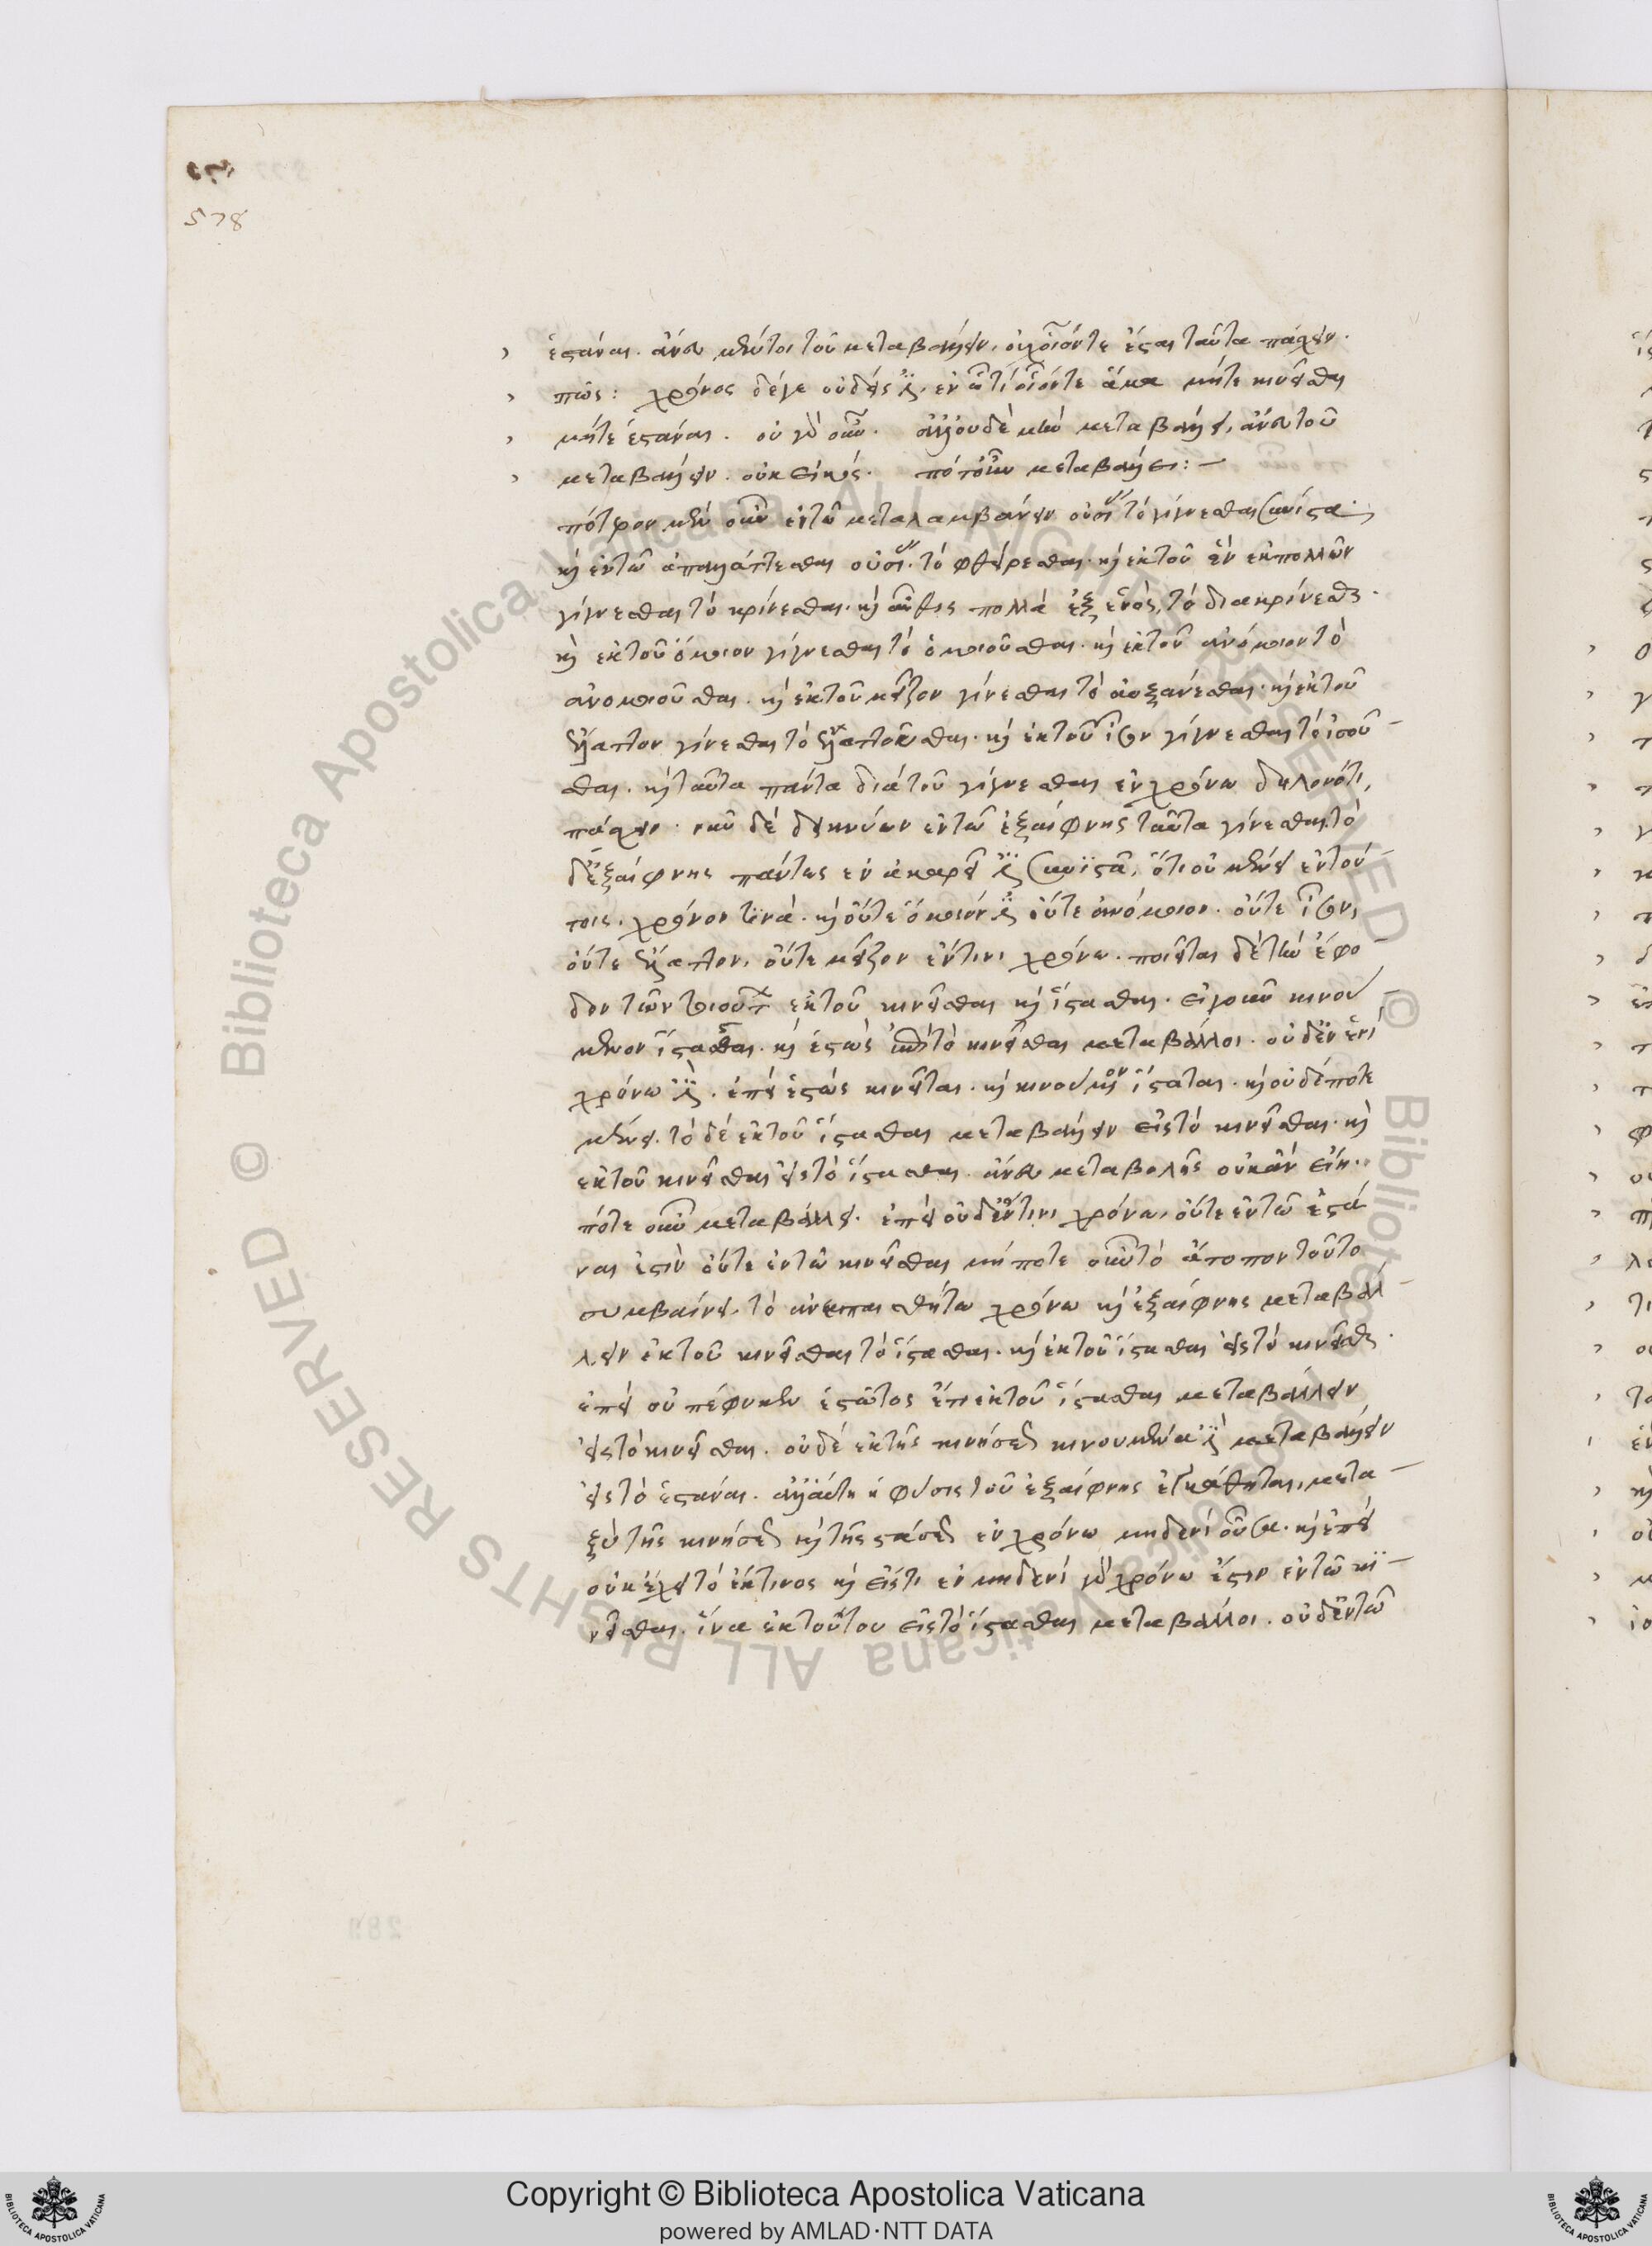 578
ἑστάναι. ἄνευ μέντοι τοῦ μεταβάλλειν, οὐχ οἷόν τε ἔσται ταῦτα πάσχειν.
πῶς: χρόνος δέ γε οὐδείς ἐστιν, ἐν ᾧ τί οἷόν τε ἅμα μήτε κινεῖσθαι
μήτε ἑστάναι. οὐ γὰρ οὖν. ἀλλ' οὐδὲ μὴν μεταβάλλει, ἄνευ τοῦ
μεταβάλλειν. οὐκ εἰκός. πότ' οὖν μεταβάλλει:
πότερον μὲν οὖν ἐν τῷ μεταλαμβάνειν οὐσίας τὸ γίγνεσθαι συνίστα
καὶ ἐν τῷ ἀπαλλάττεσθαι οὐσίας τὸ φθείρεσθαι. καὶ ἐκ τοῦ ἓν ἐκ πολλῶν
γίγνεσθαι τὸ κρίνεσθαι. καὶ αὖθις πολλὰ ἐξ ἑνός, τὸ διακρίνεσθαι.
καὶ ἐκ τοῦ ὅμοιον γίγνεσθαι τὸ ὁμοιοῦσθαι. καὶ ἐκ τοῦ ἀνόμοιον τὸ
ἀνομοιοῦσθαι. καὶ ἐκ τοῦ μεῖζον γίνεσθαι τὸ αὐξάνεσθαι. καὶ ἐκ τοῦ
ἔλαττον γίνεσθαι τὸ ἐλαττοῦσθαι. καὶ ἐκ τοῦ ἴσον γίγνεσθαι τὸ ἰσοῦ
σθαι. καὶ ταῦτα πάντα διὰ τοῦ γίγνεσθαι ἐν χρόνῳ δηλονότι,
πάσχει. νῦν δὲ δεικνύων ἐν τῷ ἐξαίφνης ταῦτα γίνεσθαι, τὸ
δ' ἐξαίφνης πάντως ἐν ἀκαρεῖ ἐστι συνιστᾶ, ὅτι οὐ μένει ἐν τού
τοις. χρόνον τινά. καὶ οὔτε ὅμοιόν ἐστιν οὔτε ἀνόμοιον. οὔτε ἴσον,
οὔτε ἔλαττον, οὔτε μεῖζον ἔν τινι χρόνῳ. ποιεῖται δὲ τὴν ἔφο
δον τῶν τοιούτων ἐκ τοῦ κινεῖσθαι καὶ ἵστασθαι. εἰ γοῦν κινού
μενον ἵστασθαι. καὶ ἑστὼς ἐπὶ τὸ κινεῖσθαι μεταβάλλοι. οὐδὲν ἑνὶ
χρόνῳ ἐστίν. ἐπεὶ ἑστὼς κινεῖται. καὶ κινούμενον ἵσταται. καὶ οὐδέποτε
μένει. τὸ δὲ ἐκ τοῦ ἵστασθαι μεταβάλλειν εἰς τὸ κινεῖσθαι. καὶ
ἐκ τοῦ κινεῖσθαι εἰς τὸ ἵστασθαι. ἄνευ μεταβολῆς οὐκ ἂν εἴη.
πότε οὖν μεταβάλλει. ἐπεὶ οὐδ' ἔν τινι χρόνῳ, οὔτε ἐν τῷ ἑστά
ναι ἐστὶν οὔτε ἐν τῷ κινεῖσθαι μήποτε οὖν τὸ ἄτοπον τοῦτο
συμβαίνει. τὸ ἀνεπαισθήτῳ χρόνῳ καὶ ἐξαίφνης μεταβάλ
λειν ἐκ τοῦ κινεῖσθαι τὸ ἵστασθαι. καὶ ἐκ τοῦ ἵστασθαι εἰς τὸ κινεῖσθαι.
ἐπεὶ οὐ πέφυκεν ἑστῶτος ἔτι ἐκ τοῦ ἵστασθαι μεταβάλλειν
εἰς τὸ κινεῖσθαι. οὐδὲ ἐκ τῆς κινήσεως κινουμένα ἐστὶ μεταβάλλειν
εἰς τὸ ἑστάναι. ἀλλ' αὕτη ἡ φύσις τοῦ ἐξαίφνης ἐγκάθηται, μετα
ξὺ τῆς κινήσεως καὶ τῆς στάσεως ἐν χρόνῳ μηδενὶ οὖσα. καὶ ἐπεὶ
οὐκ ἔχει τὸ ἔκ τινος καὶ εἴς τι ἐν μηδενὶ γὰρ χρόνῳ ἔστιν ἐν τῷ κι
νεῖσθαι. ἵνα ἐκ τούτου εἰς τὸ ἵστασθαι μεταβάλλοι. οὐδ' ἐν τῷ
Copyright © Biblioteca Apostolica Vaticana
powered by AMLAD·NTT DATA